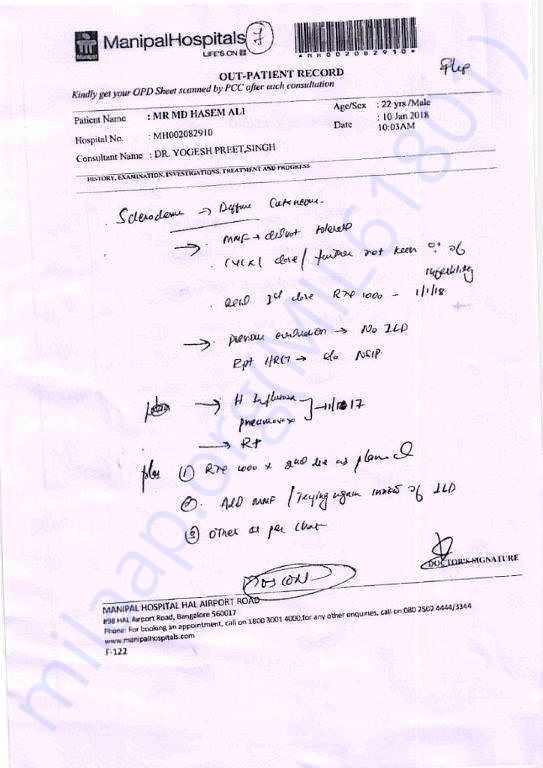 ManipalHospitals
LIFE'S ON
*MH002082910*
OUT-PATIENT RECORD
Kindly get your OPD Sheet scanned by PCC after each consultation
Patient Name : MR MD HASEM ALI
Age/Sex : 22 yrs /Male
Hospital No. : MH002082910
Date : 10 Jan 2018
10:03AM
Consultant Name : DR. YOGESH PREET,SINGH
HISTORY, EXAMINATION, INVESTIGATIONS, TREATMENT AND PROGRESS
Scleroderma → Diffuse Cutaneous
→ MMF → did not tolerate
further not keen of infertility
dose RTX 1000 - 1/1/18
→ previous evaluation → No ILD
Rpt HRCT → NSIP
→ H Influenza
pneumovax
→ RT
plan ① RTX 1000 x 2nd dose as planned
② Add MMF / Trying again of ILD
③ other as per chart
DOCTOR'S SIGNATURE
MANIPAL HOSPITAL HAL AIRPORT ROAD
#98 HAL Airport Road, Bangalore 560017
Phone: For booking an appointment, call on 1800 3001 4000,for any other enquiries, call on 080 2502 4444/3344
www.manipalhospitals.com
F-122
milaap.org(MIL61801)